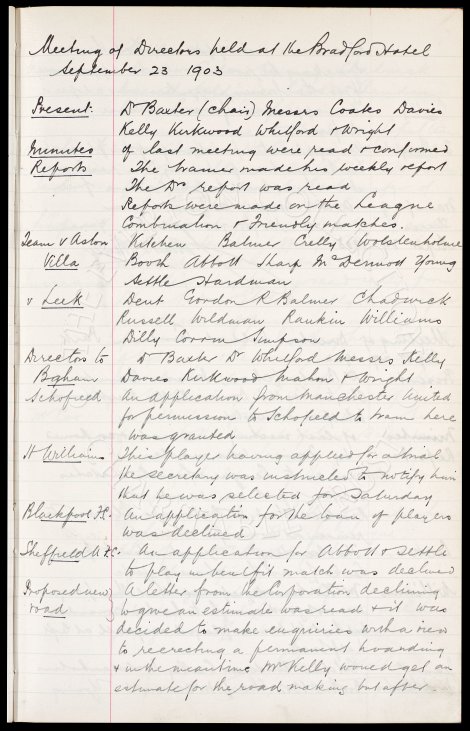 Meeting of Directors held at the Bradford Hotel
September 23 1903
Present: Dr Baxter (chair) Messrs Coates Davies
Kelly Kirkwood Whitford & Wright
Minutes of last meeting were read & confirmed
Reports The trainer made his weekly report
The Drs report was read
Reports were made on the League
Combination & Friendly matches.
Team v Aston Kitchen Balmer Crelly Wolstenholme
Villa Booth Abbott Sharp McDermott Young
Settle Hardman
v Leek Dent Gordon R Balmer Chadwick
Russell Wildman Rankin Williams
Dilly Corrin Simpson
Directors to Dr Baxter Dr Whitford Messrs Kelly
Bgham Davies Kirkwood Mahon & Wright
Schofield An application from Manchester United
for permission to Schofield to train here
was granted
H Williams This player having applied for a trial
the secretary was instructed to notify him
that he was selected for Saturday
Blackpool F.C. An application for the loan of players
was declined
Sheffield U F.C. An application for Abbott & Settle
to play in benefit match was declined
Proposed new A letter from the Corporation declining
road to give an estimate was read & it was
decided to make enquiries with a view
to recrecting a permanent hoarding
& in the meantime Mr Kelly would get an
estimate for the road making but after